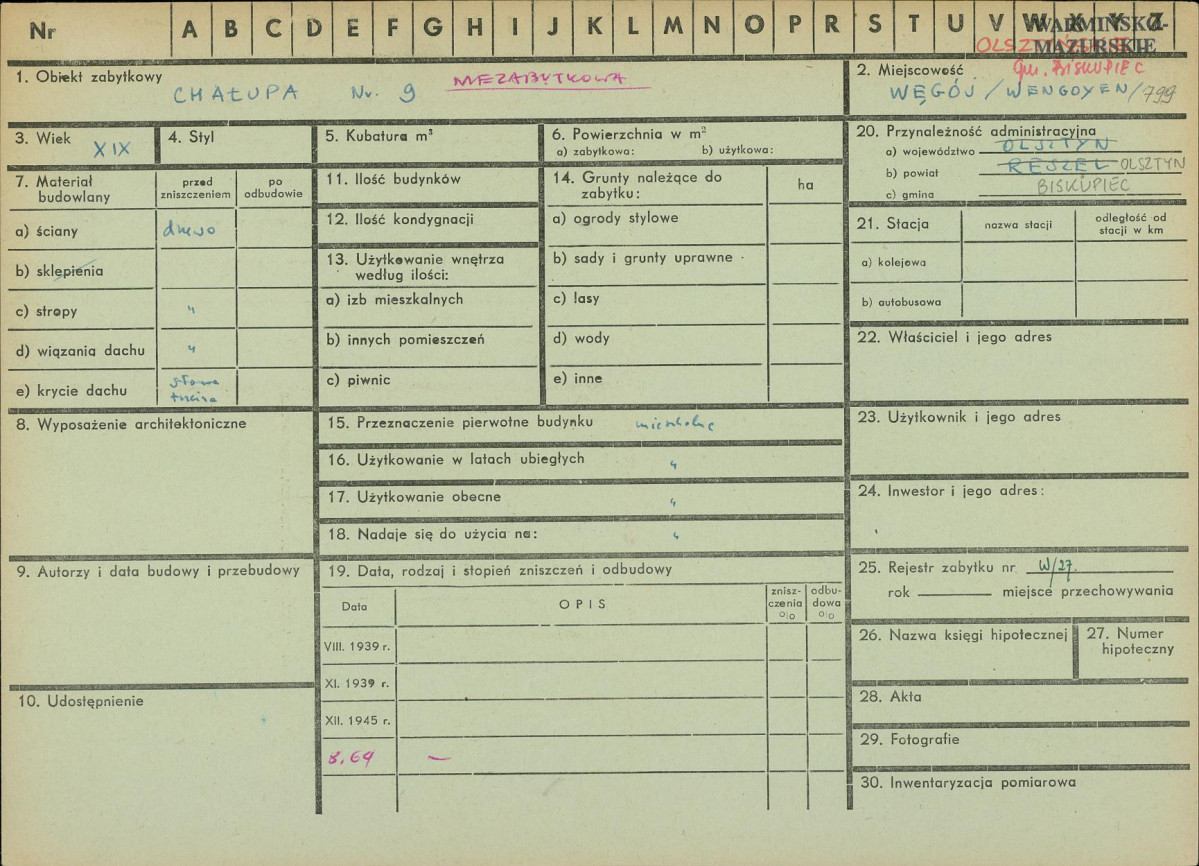 Nr A B C D E F G H I J K L M N O P R S T U V W X Y Z
WARMIŃSKO-
MAZURSKIE
1. Obiekt zabytkowy
CHAŁUPA Nr. 9 NIEZABYTKOWA
2. Miejscowość gm. BISKUPIEC
WĘGÓJ / WENGOYEN / 799
3. Wiek XIX
4. Styl
5. Kubatura m³
6. Powierzchnia w m²
a) zabytkowa: b) użytkowa:
7. Materiał budowlany
przed zniszczeniem
po odbudowie
a) ściany drewo
b) sklepienia
c) stropy "
d) wiązania dachu "
e) krycie dachu słoma
trzcina
8. Wyposażenie architektoniczne
9. Autorzy i data budowy i przebudowy
10. Udostępnienie
11. Ilość budynków
12. Ilość kondygnacji
13. Użytkowanie wnętrza
według ilości:
a) izb mieszkalnych
b) innych pomieszczeń
c) piwnic
14. Grunty należące do
zabytku:
ha
a) ogrody stylowe
b) sady i grunty uprawne
c) lasy
d) wody
e) inne
15. Przeznaczenie pierwotne budynku mieszkalne
16. Użytkowanie w latach ubiegłych "
17. Użytkowanie obecne "
18. Nadaje się do użycia na: "
19. Data, rodzaj i stopień zniszczeń i odbudowy
Data OPIS
znisz-
czenia
%
odbu-
dowa
%
VIII. 1939 r.
XI. 1939 r.
XII. 1945 r.
8.64 —
20. Przynależność administracyjna
a) województwo OLSZTYN
b) powiat RESZEL OLSZTYN
c) gmina BISKUPIEC
21. Stacja
nazwa stacji
odległość od
stacji w km
a) kolejowa
b) autobusowa
22. Właściciel i jego adres
23. Użytkownik i jego adres
24. Inwestor i jego adres:
25. Rejestr zabytku nr W/27.
rok miejsce przechowywania
26. Nazwa księgi hipotecznej
27. Numer
hipoteczny
28. Akta
29. Fotografie
30. Inwentaryzacja pomiarowa